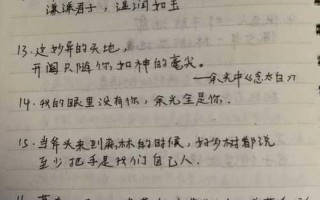 谦谦君子，温润如玉
13. 这妙异的天地，
开阖只随你如神的毫尖。
——余光中《念太白》
14. 我的眼里没有你，余光全是你．
15. 当斧头来到森林的时候，好多树都说
至少把手是我们自己人．